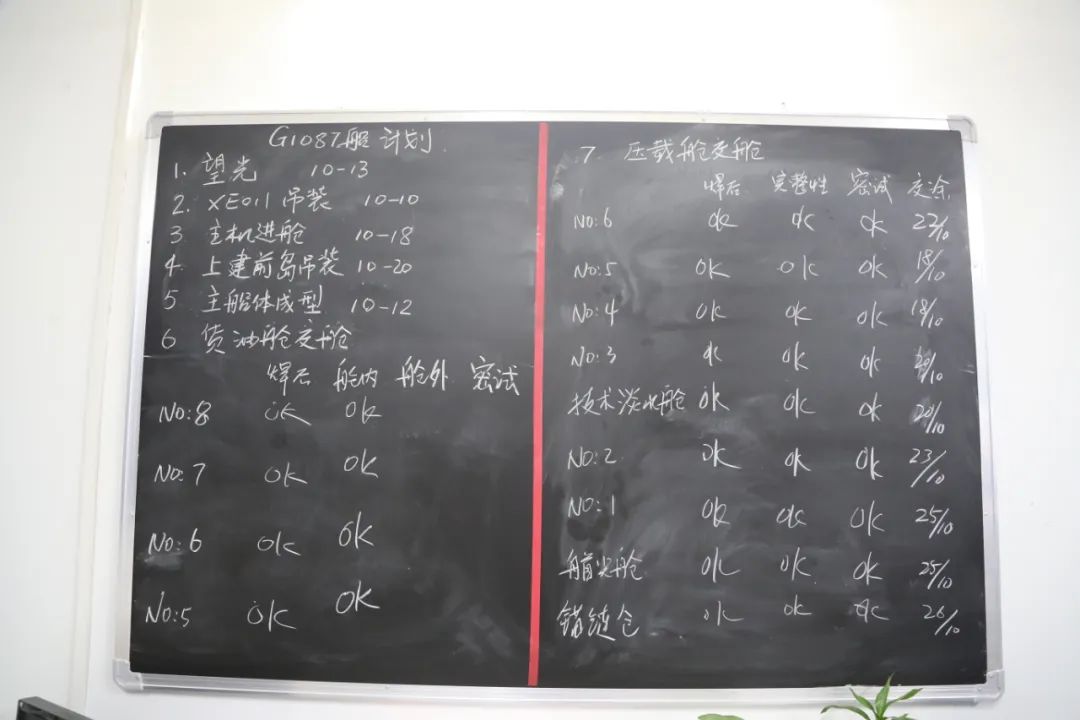 G1087船计划
1. 望光 10-13
2. XE011吊装 10-10
3 主机进舱 10-18
4 上建前岛吊装 10-20
5 主船体成型 10-12
6 货油舱交舱
焊后 舱内 舱外 密试
No:8 ok ok
No:7 ok ok
No:6 ok ok
No:5 ok ok
7 压载舱交舱
焊后 完整性 密试 交涂
No:6 ok ok ok 23/10
No:5 ok ok ok 18/10
No:4 ok ok ok 18/10
No:3 ok ok ok /10
技术淡水舱 ok ok ok 20/10
No:2 ok ok ok 23/10
No:1 ok ok ok 25/10
艏尖舱 ok ok ok 25/10
锚链仓 ok ok ok 26/10